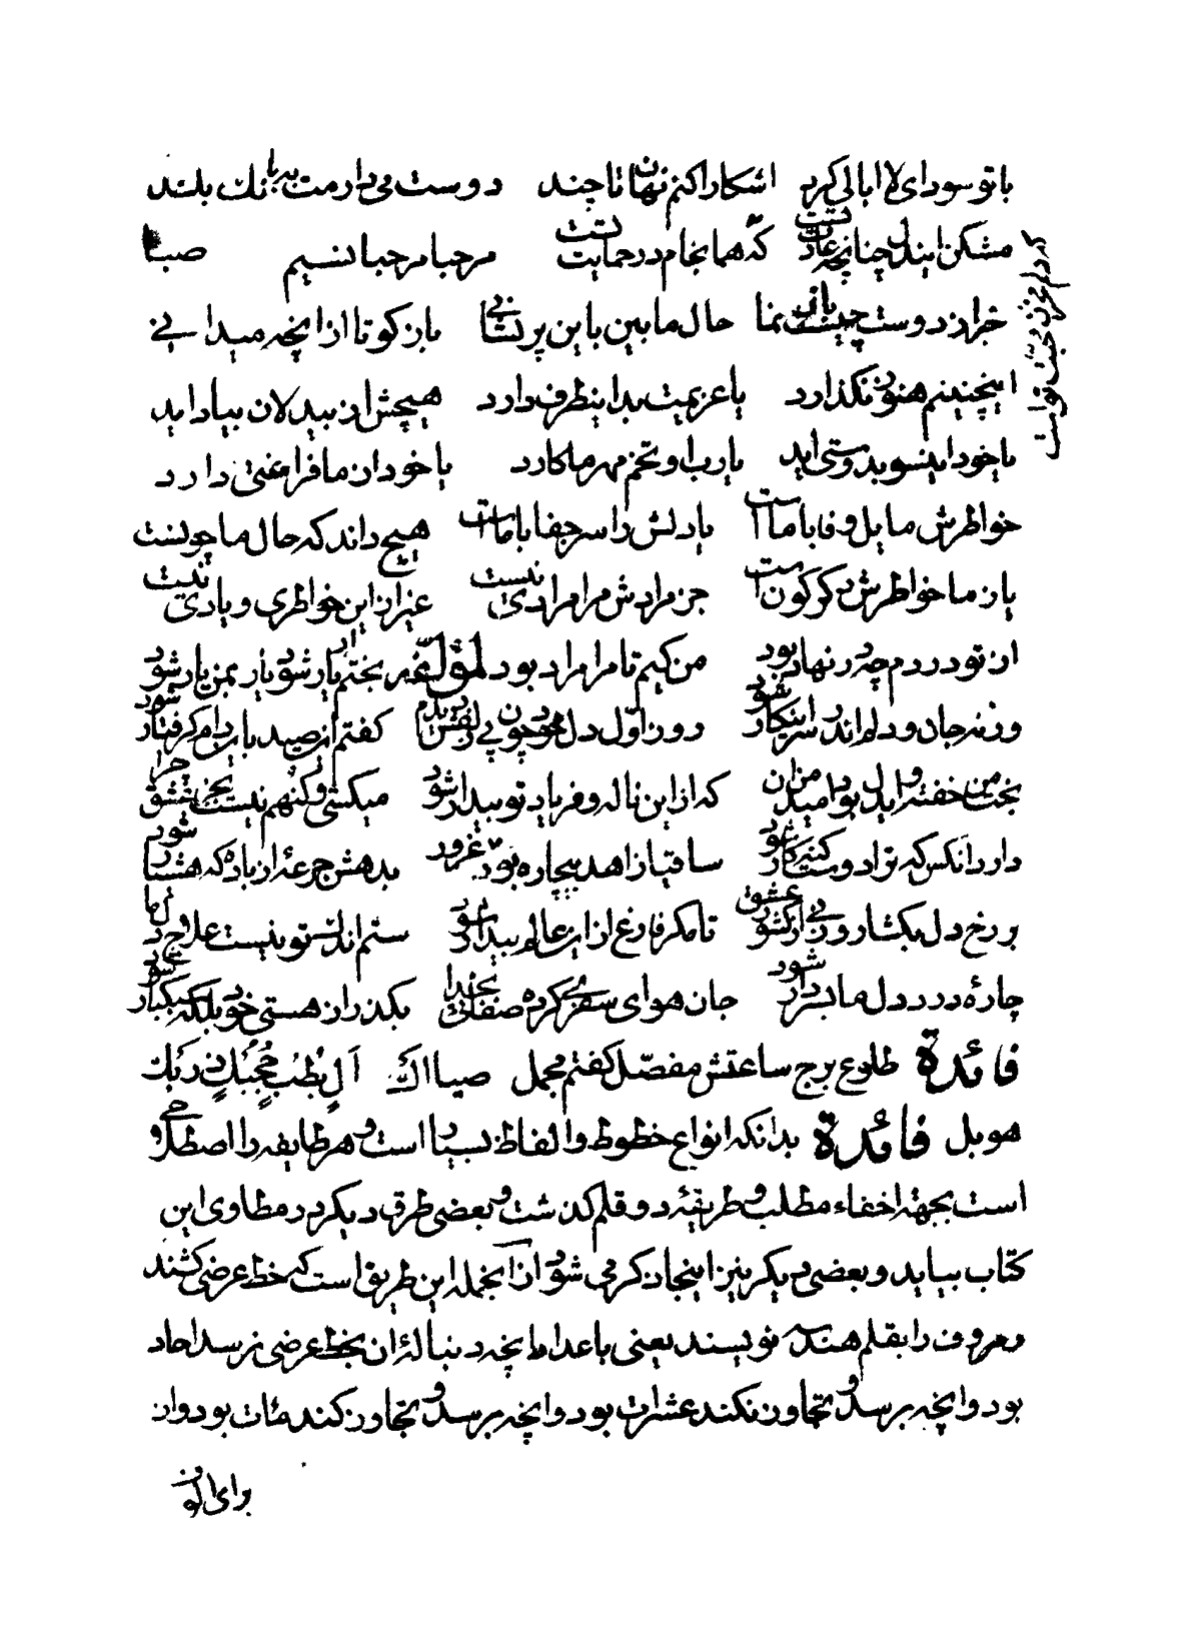 با تو سودای لاابالی کرد اشکارا کنم نهان تا چند دوست می دارمت ببانک بلند
مشکن ایندل چنانچه عادتست که همانجام در حمایتت مرحبا مرحبا نسیم صبا
خبر از دوست چیست بازنما حال ما بین باین پریشانی باز کو تا از انچه میدانی
اینچنینم هنوز نکذارد یا عزیمت بداینطرف دارد هیچش از بیدلان بیاد اید
یا خود اینسو بدوستی اید یا رب او تخم مهر ما کارد یا خود از ما فراغتی دارد
خواطرش مایل وفا با ماست یا دلش را سر جفا با ماست هیچ داند که حال ما چونست
یا ز ما خواطرش دکرکونست جز مرادش مرا مرادی نیست غیر از این خواطری و یادی نیست
ان تو در دم چه در نهاد بود من کیم تا مرا مراد بود لمؤلفه بختم ار یار شود یار بمن یار شود
ورنه جان و دلم اندر سر اینکار شود روز اول دل خود چون پی زلفش دیدم کفتم از صید باین دام کرفتار شود
بخت من خفته و ایدل بود امید من ان که از این ناله و فریاد تو بیدار شود میکشی و کنهم نیست بجز عشق چرا
دارد انکس که ترا دوست کنه کار شود ساقیا زاهد بیچاره بود مست غرور بدهش جرعهٔ از باده که هشیار شود
بر رخ دل بکشا روزنی از کشور عشق تا مکر فارغ از این عالم پندار شود ستم اندلستو نیست علاج دل ما
چارهٔ درد دل ما بسر دار شود جان هوای سفری کرده صفا بخدا بکذر از هستی خود بلکه سبکبار شود
فائدة طلوع برج ساعتش مفصل کفتم مجمل
هو بل فائدة بدانکه انواع خطوط و الفاظ بسیار است و هر طایفه را اصطلاحی و
است بجهة اخفاء مطلب و طریقهٔ دو قلم کذشت و بعضی طرق دیکر در مطاوی این
کتاب بیاید و بعضی دیکر نیز اینجا ذکر می شود از آنجمله این طریق است که خط عرضی کشند
و حروف را بقلم هندسه نویسند یعنی باعداد اما انچه دنبالهٔ ان بخط عرضی نرسد احاد
بود و انچه برسد و تجاوز نکند عشرات بود و انچه برسد و تجاوز کند مئات بود و از
برای الوف
که دلم مخزن محبت تواست